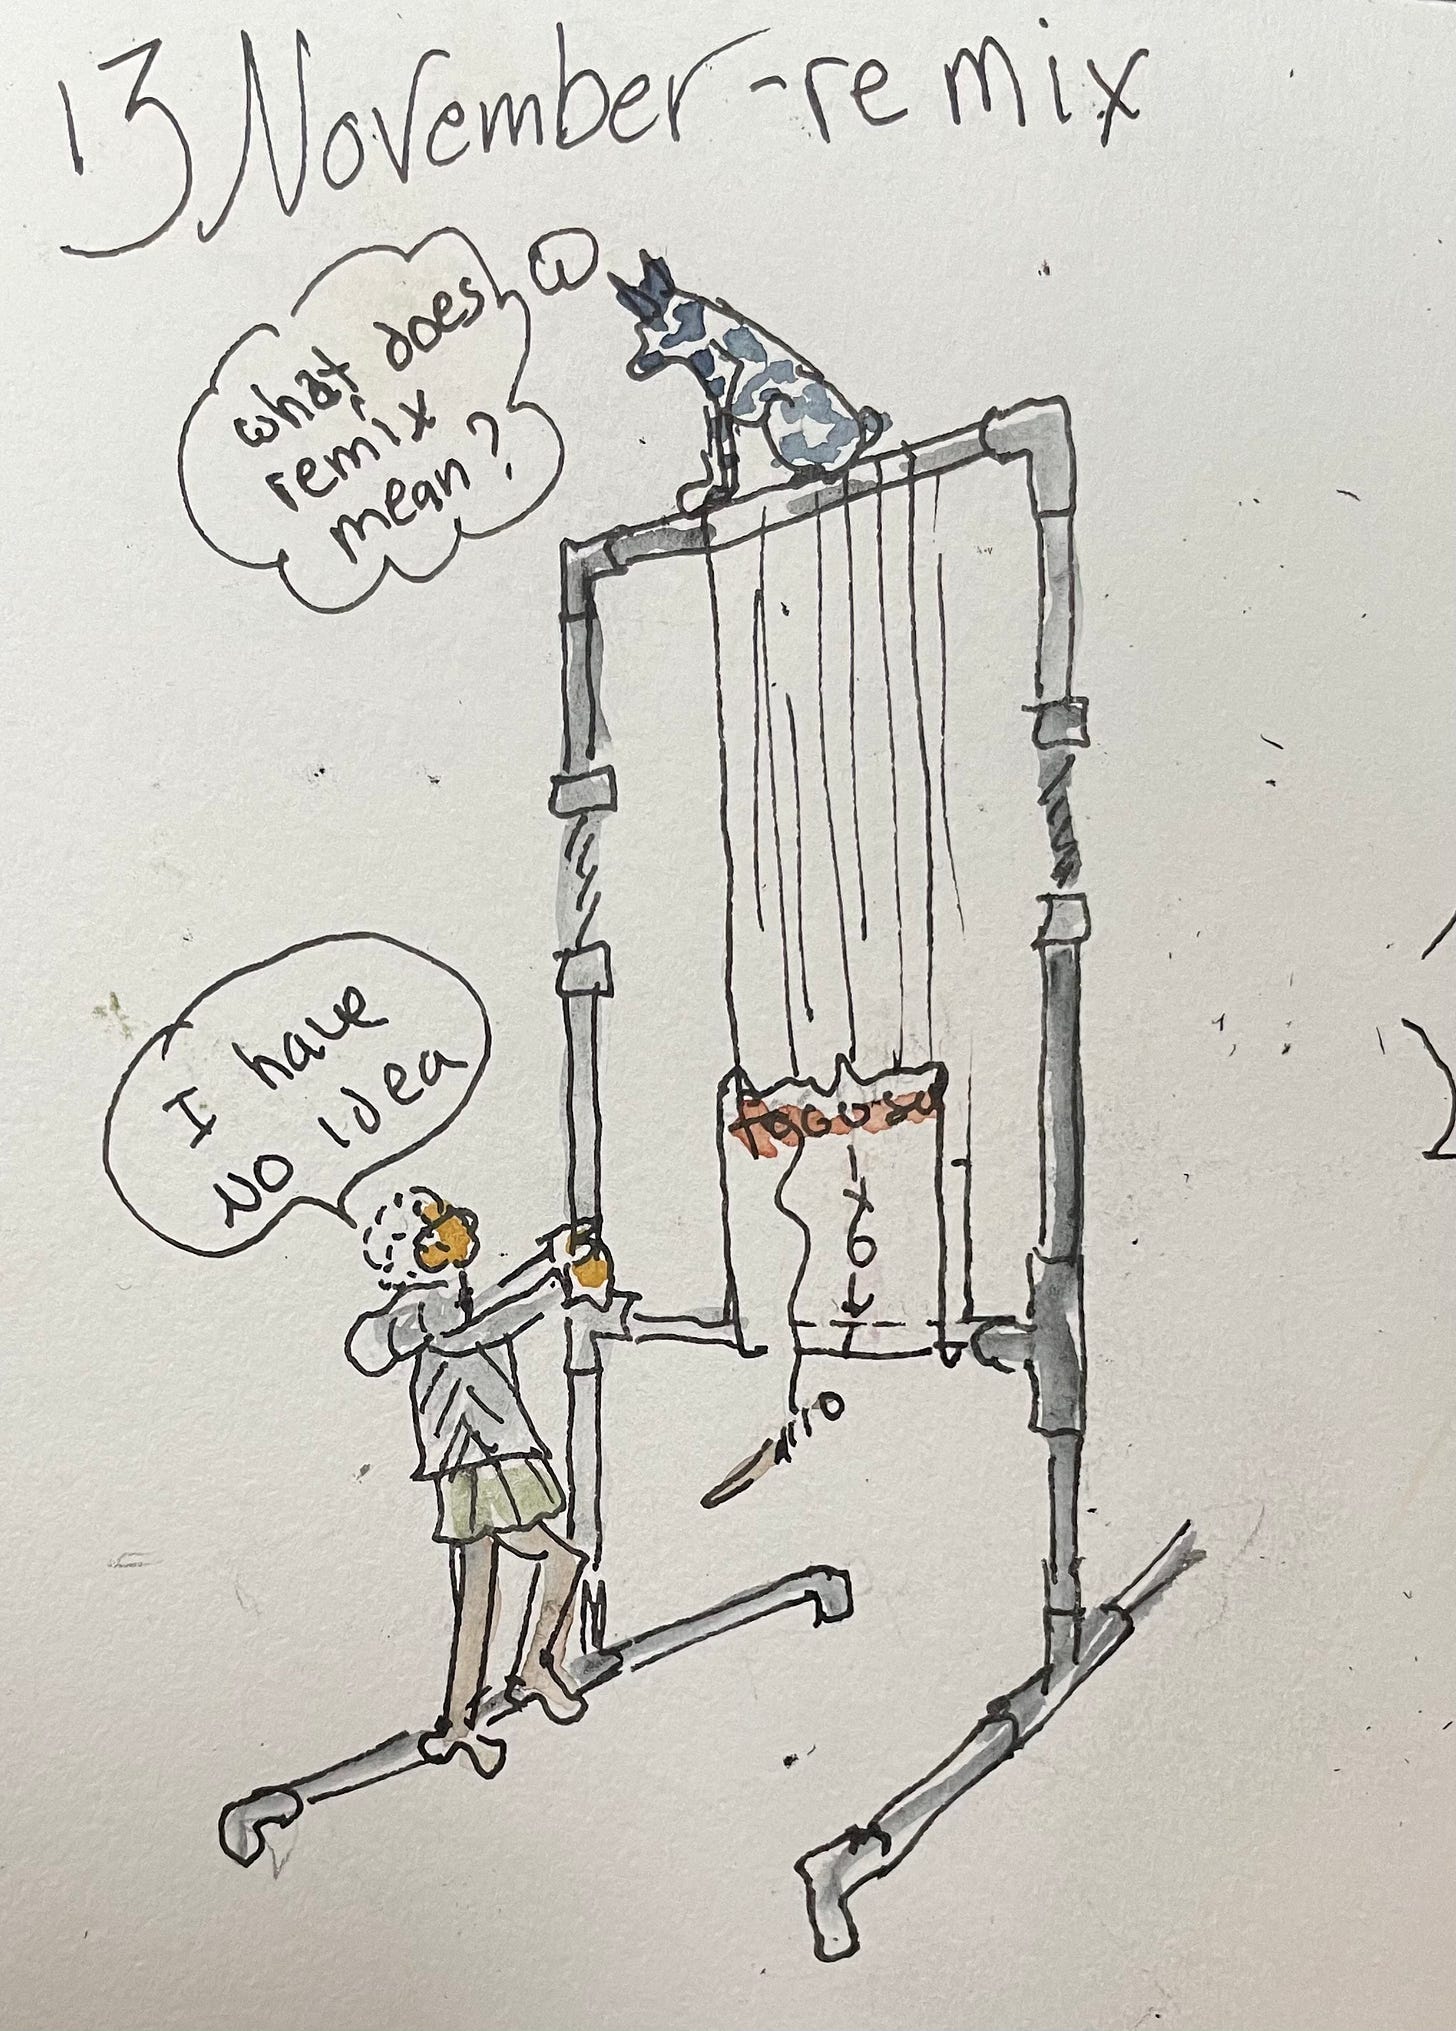 13 November-remix
what does
remix
mean?
I have
no idea
6